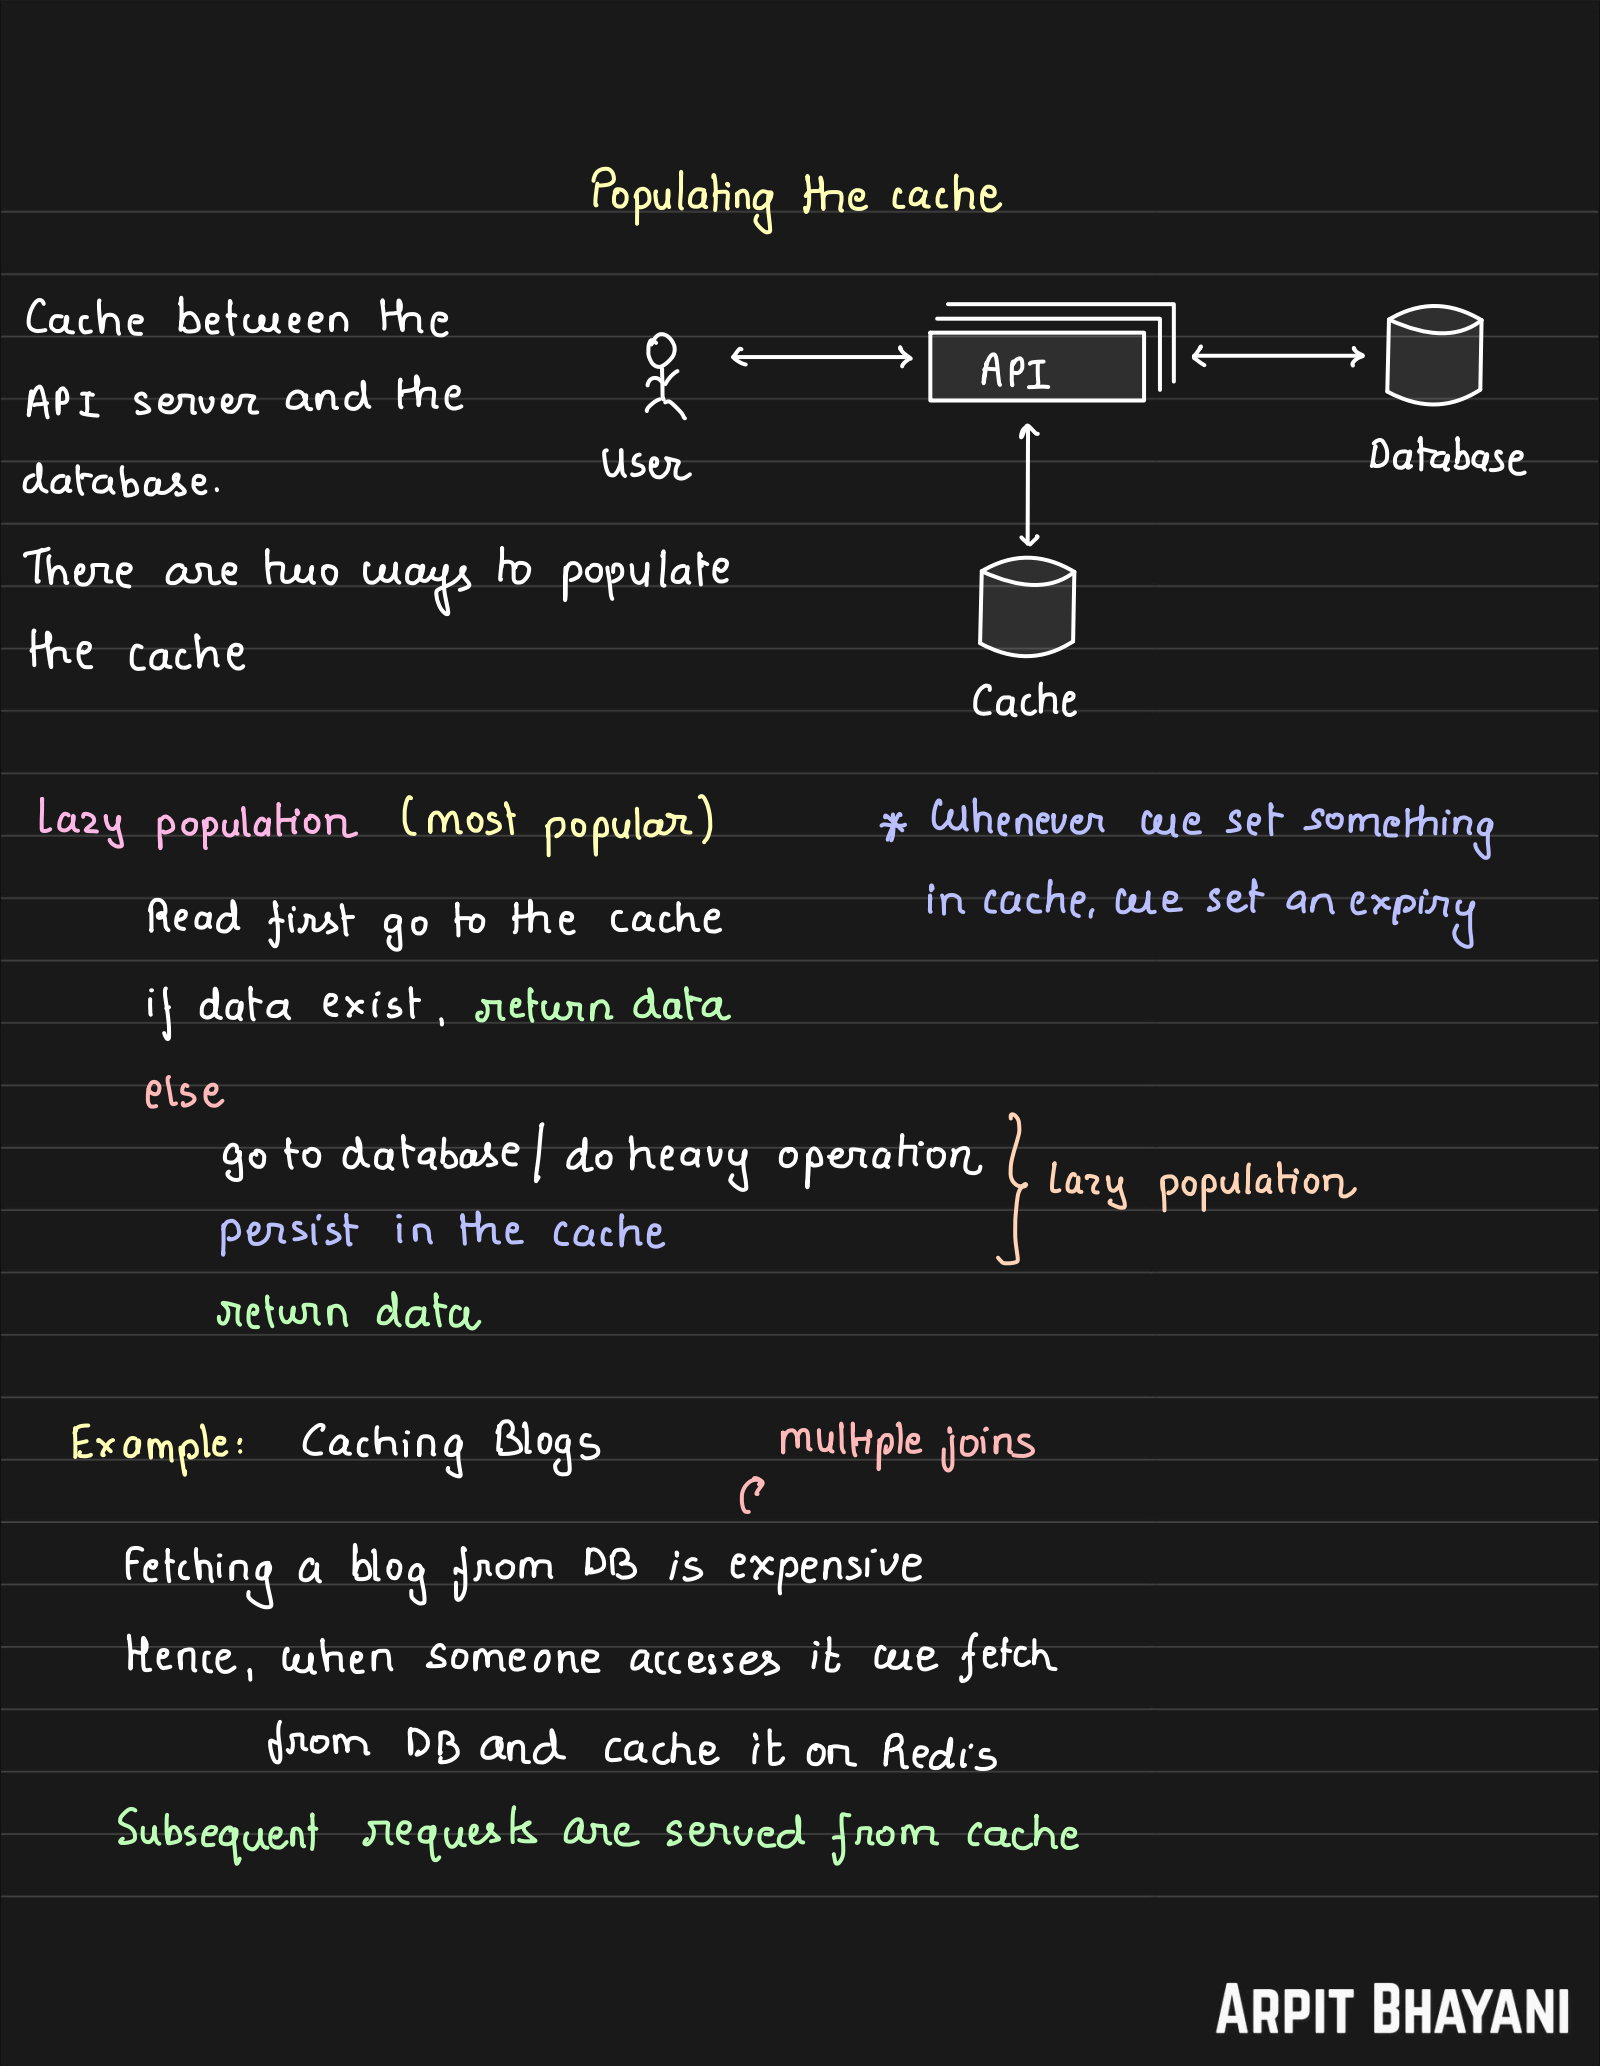 Populating the cache
Cache between the
API server and the
database.
User
API
Database
Cache
There are two ways to populate
the cache
Lazy population (most popular)
* Whenever we set something
in cache, we set an expiry
Read first go to the cache
if data exist, return data
else
go to database / do heavy operation
persist in the cache
return data
Lazy population
Example: Caching Blogs
multiple joins
Fetching a blog from DB is expensive
Hence, when someone accesses it we fetch
from DB and cache it on Redis
Subsequent requests are served from cache
ARPIT BHAYANI